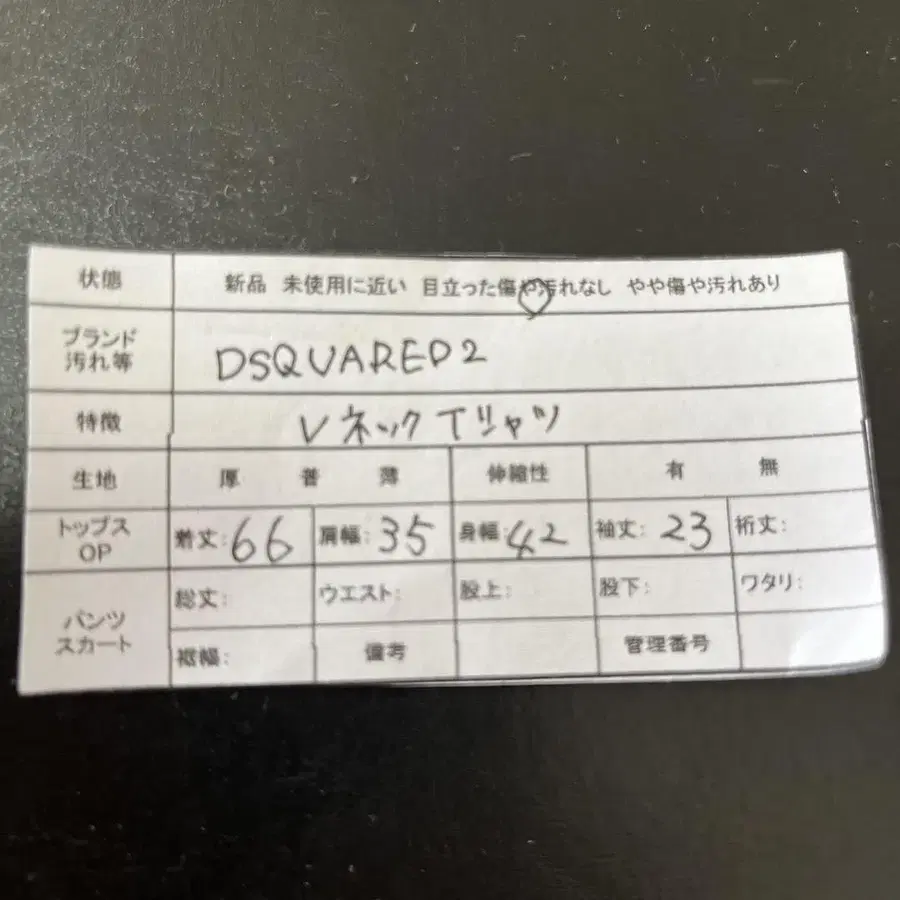 状態 新品 未使用に近い 目立った傷や汚れなし やや傷や汚れあり
ブランド
汚れ等
DSQUARED2
特徴 Vネック Tシャツ
生地 厚 普 薄 伸縮性 有 無
トップス
OP
着丈:66 肩幅:35 身幅:42 袖丈:23 裄丈:
パンツ
スカート
総丈: ウエスト: 股上: 股下: ワタリ:
裾幅: 備考 管理番号